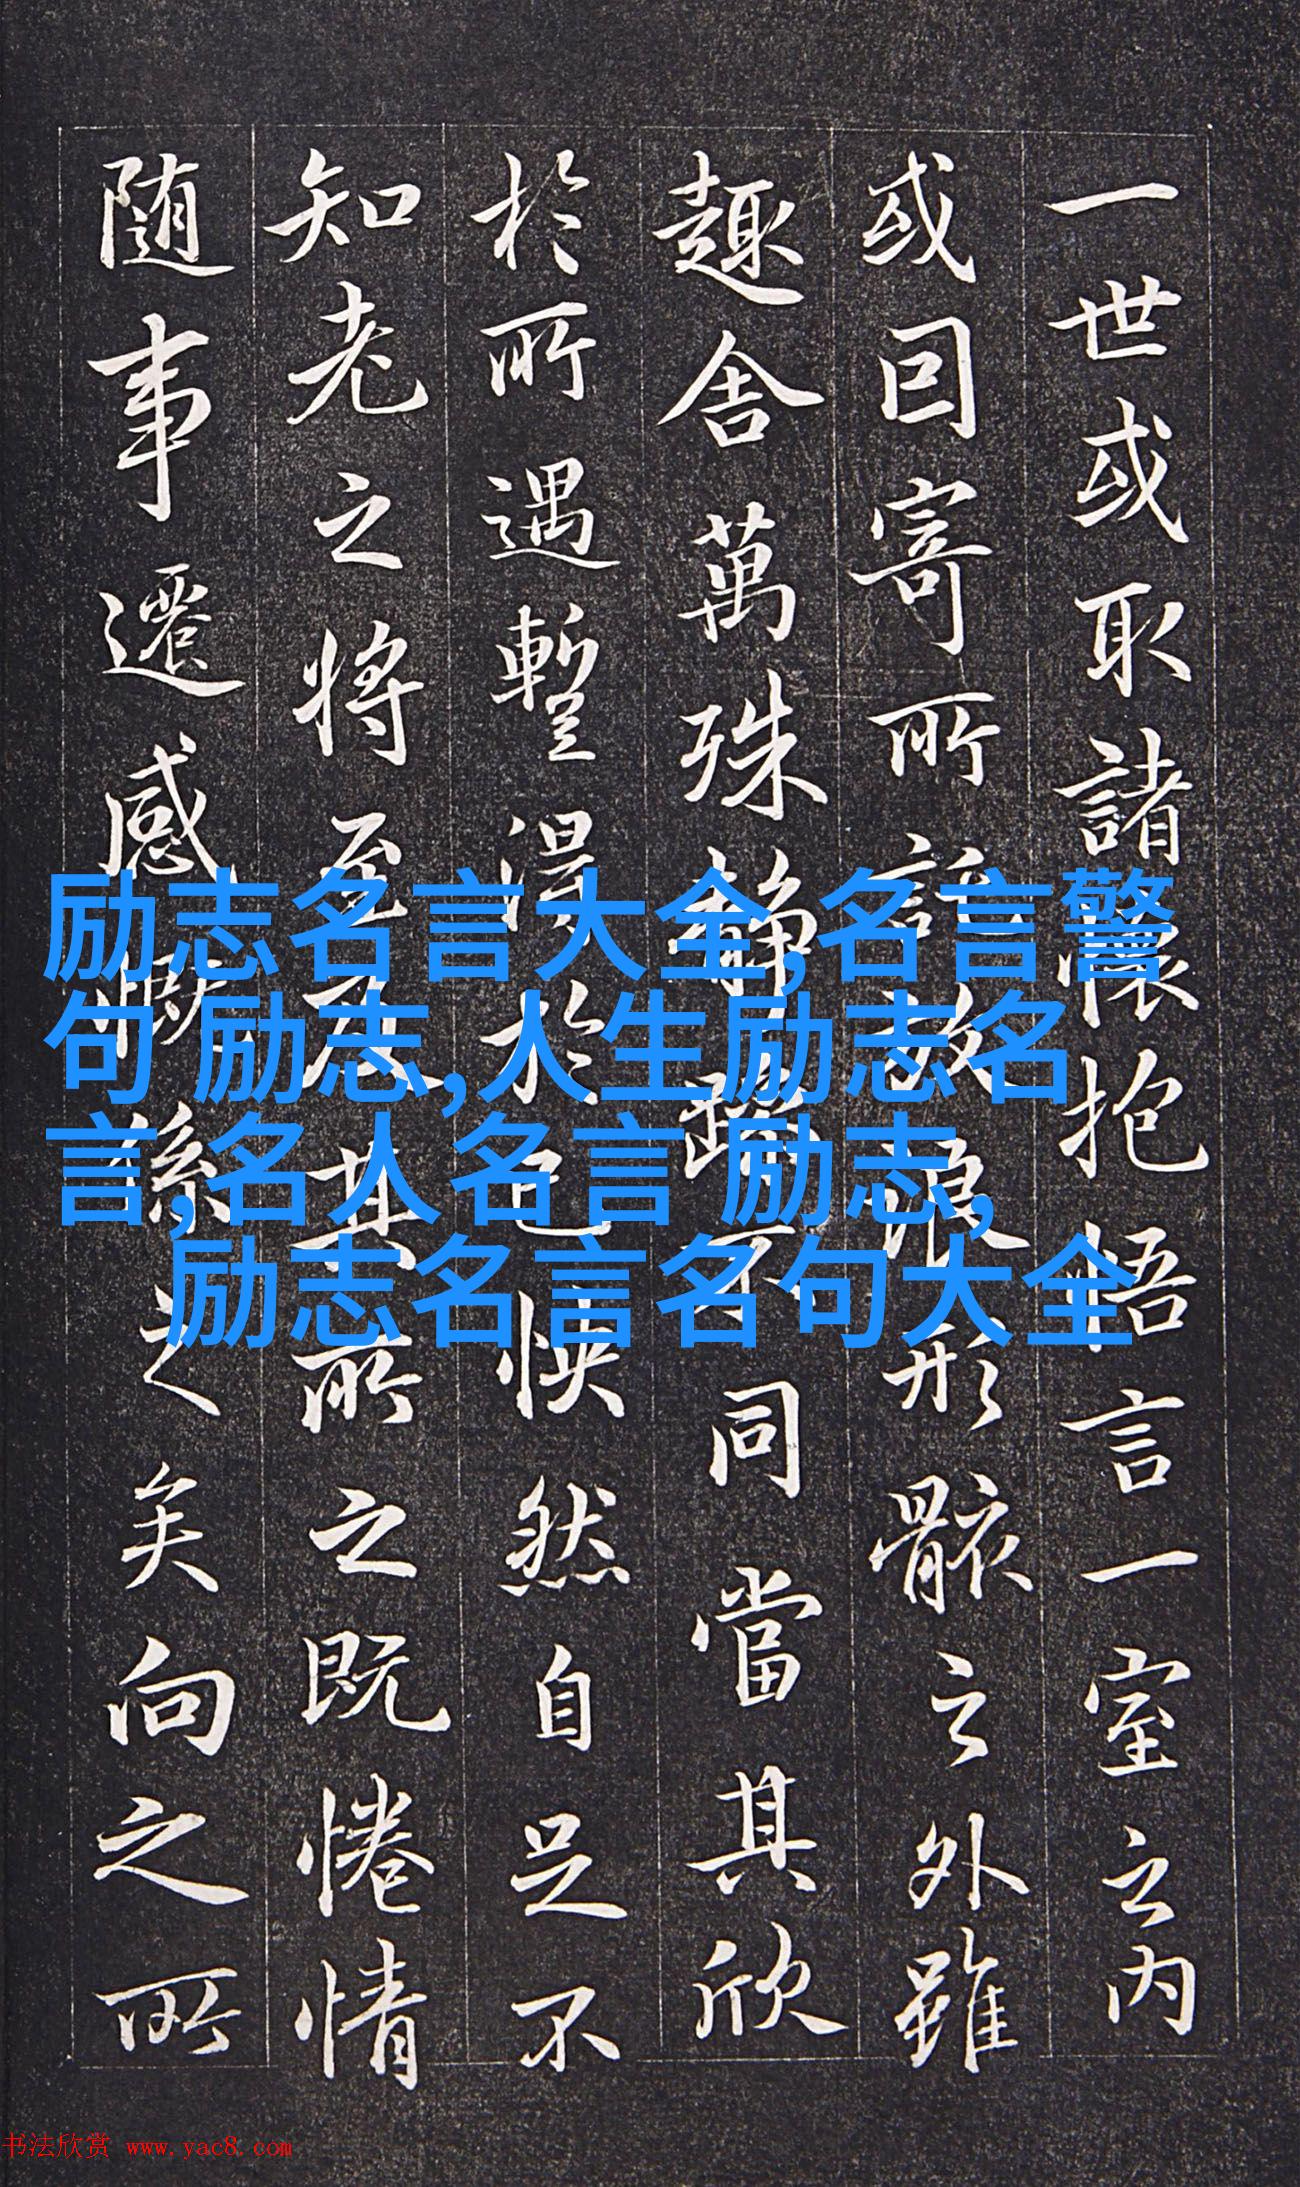 一世或取諸懷抱悟言一室之內
或因寄所託放浪形骸之外雖
趣舍萬殊靜躁不同當其欣
於所遇暫得於己怏然自足不
知老之將至及其所之既惓情
随事遷感慨係之矣向之所
励志名言大全,名言警
句 励志,人生励志名
言,名人名言 励志,
励志名言名句大全
书法欣赏 www.yac8.com